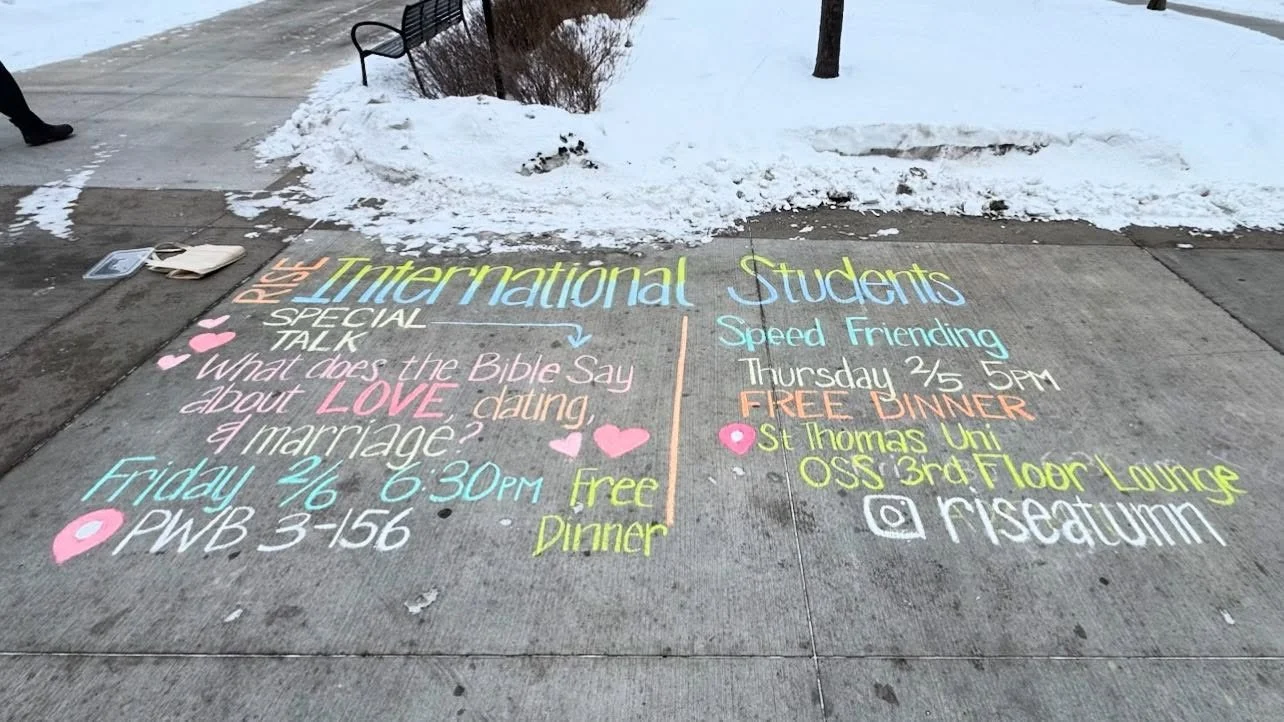 RISE International Students
SPECIAL
TALK
What does the Bible Say
about LOVE, dating,
& marriage?
Friday 2/6 6:30PM Free
Dinner
PWB 3-156
Speed Friending
Thursday 2/5 5PM
FREE DINNER
St Thomas Uni
OSS 3rd Floor Lounge
riseatumn